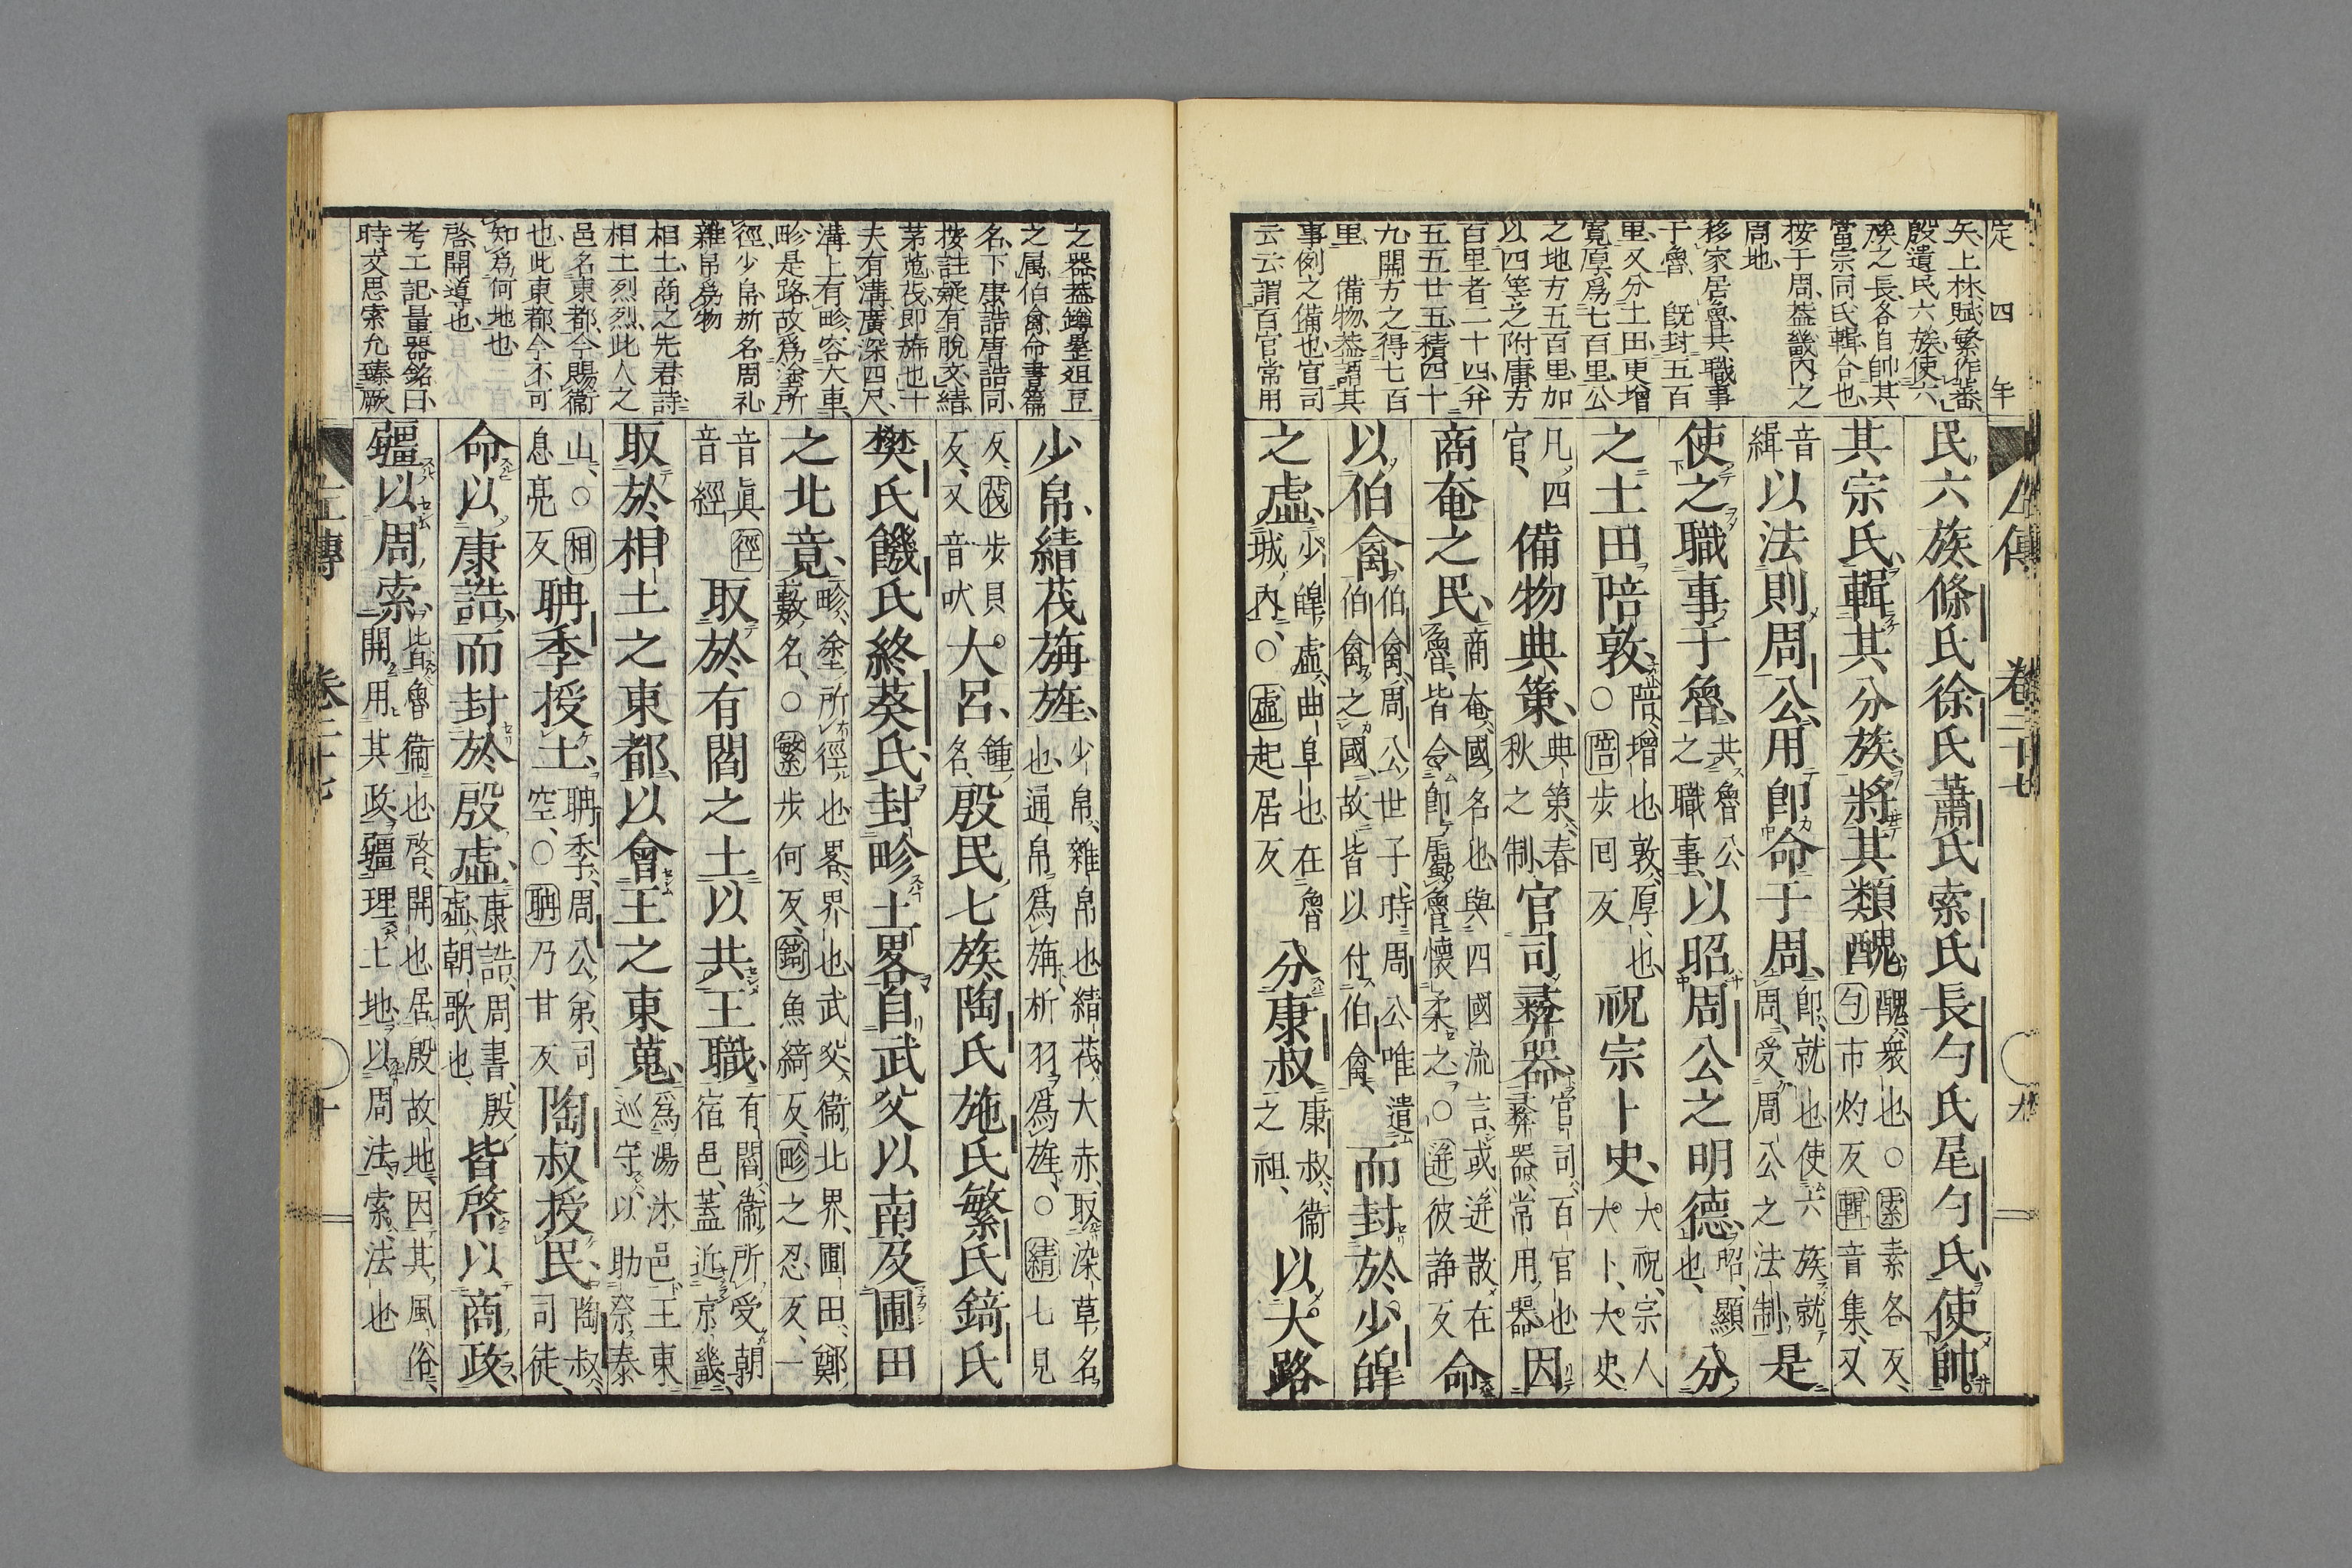 定四年
矢上林賦繁作蕃
殷遺民六族使六
族之長各自帥其
當宗同氏輯合也
按于周葢畿内之
周地
移家居魯共職事
于魯　旣封五百
里又分土田更增
寛厚爲七百里公
之地方五百里加
以四等之附庸方
百里者二十四并
五五廿五積四十
九開方之得七百
里　備物葢謂其
事例之備也官司
云云謂百官常用
民六族條氏徐氏蕭氏索氏長勺氏尾勺氏使帥
其宗氏輯其分族將其類醜醜衆也○索素各反勺市灼反輯音集又
音緝以法則周公用卽命于周卽就也使六族就周受周公之法制是
使之職事于魯共魯公之職事以昭周公之明德昭顯也分
之土田陪敦陪增也敦厚也○陪步回反祝宗卜史大祝宗人大卜大史
凡四官備物典策典策春秋之制官司彝器官司百官也彝器常用器因
商奄之民商奄國名也與四國流言或迸散在魯皆令卽屬魯懷柔之○迸彼諍反命
以伯禽伯禽周公世子時周公唯遣伯禽之國故皆以付伯禽而封於少皥
之虛少皥虛曲阜也在魯城内○虛起居反分康叔康叔衞之祖以大路
之器葢鐏罍俎豆
之屬伯禽命書篇
名下康誥唐誥同
按註疑有脫文綪
茅蒐茷即斾也十
夫有溝廣深四尺
溝上有畛容大車
畛是路故爲塗所
徑少帛斾名周礼
雜帛爲物
相土商之先君詩
相土烈烈此人之
邑名東都今賜衞
也此東都今不可
知爲何地也
啓開導也
考工記量器銘曰
時文思索允臻厥
少帛綪茷旃旌少帛雜帛也綪茷大赤取染草名也通帛爲旃析羽爲旌○綪七見
反茷步貝反又音吠大呂鍾名殷民七族陶氏施氏繁氏錡氏
樊氏饑氏終葵氏封畛土畧自武父以南及圃田
之北竟畛塗所徑也畧界也武父衞北界圃田鄭藪名○繁步何反錡魚綺反畛之忍反一
音眞徑音經取於有閻之土以共王職有閻衞所受朝宿邑蓋近京畿
取於相土之東都以會王之東蒐爲湯沐邑王東巡守以助祭泰
山○相息亮反聃季授土聃季周公弟司空○聃乃甘反陶叔授民陶叔司徒
命以康誥而封於殷虛康誥周書殷虛朝歌也皆啓以商政
疆以周索皆魯衞也啓開也居殷故地因其風俗開用其政疆理土地以周法索法也